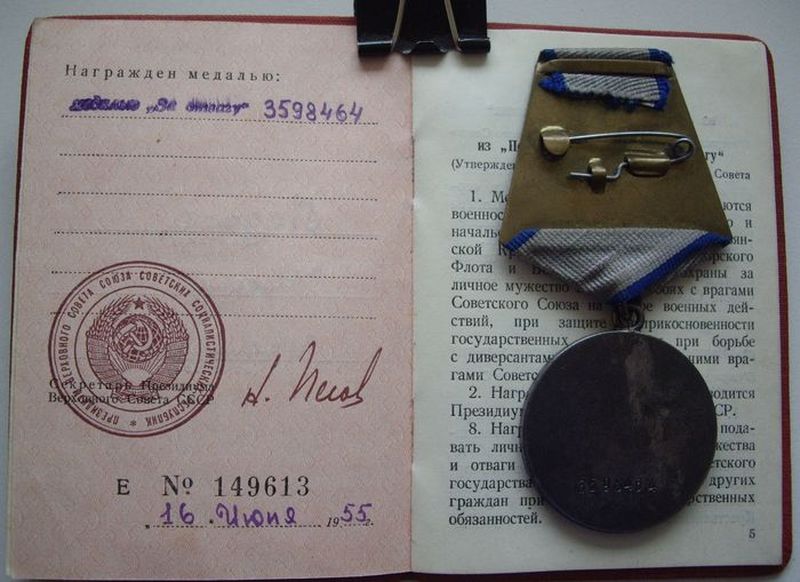 Награжден медалью:
медалью „За отвагу“ 3598464
ПРЕЗИДИУМ ВЕРХОВНОГО СОВЕТА СОЮЗА СОВЕТСКИХ СОЦИАЛИСТИЧЕСКИХ РЕСПУБЛИК
Секретарь Президиума
Верховного Совета СССР
Н. Пегов
Е № 149613
16 Июня 1955.
из „П гу“
(Утвержден Совета
1. Ме ются
военнос и
началь ян-
ской Кр рского
Флота и В охраны за
личное мужество боях с врагами
Советского Союза на ре военных дей-
ствий, при защите прикосновенности
государственных при борьбе
с диверсантам щими вра-
гами Советс
2. Нагр одится
Президиу СР.
8. Наг пода-
вать личн жества
и отваги етского
государства других
граждан при рственных
обязанностей.
5